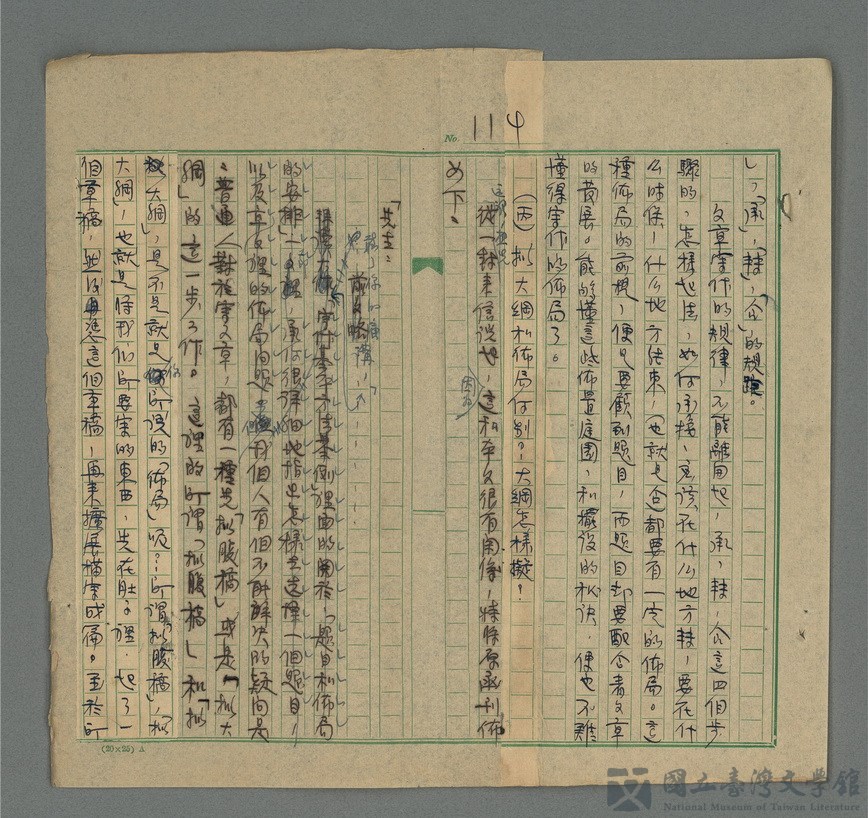 No. 114
」,「承」,「轉」,「合」的規蹤。
文章寫作的規律,不能離開起,承,轉,合這四個步
驟的,怎樣起法,如何承接,應該在什么地方轉,要在什
么時候,什么地方結束,也就是否都要有一定的佈局。這
種佈局的前提,便只要顧到題目,而題目却要配合着文章
的發展。能夠懂這些佈置庭園,和擺設的秘訣,便也不難
懂得寫作的佈局了。
(丙)拟大綱和佈局何別?大綱怎樣擬?
從一封來信說起,這和本文很有關係,特將原函刊佈
因為
如下:
「先生:
前文略
寫作基本方法葉例裡面的關於「題目和佈局
的安排」一文裡,承你很詳細地指出怎樣去選擇一個題目,
以及文章裡的佈局問題,我個人有個不能解決的疑问是
:普通人對於寫文章,都有一種先「拟腹稿」或是「拟大
綱」的這一步工作。這裡的所謂「拟腹稿」和「拟
大綱」,是不是就是你所説的「佈局」呢?所謂拟腹稿,拟
大綱,也就是將我们所要寫的東西,先在肚子裡,起了一
個草稿,然後再憑這個草稿,再來擴展描寫成篇。至於所
(20×25) A
國立臺灣文學館
National Museum of Taiwan Literature